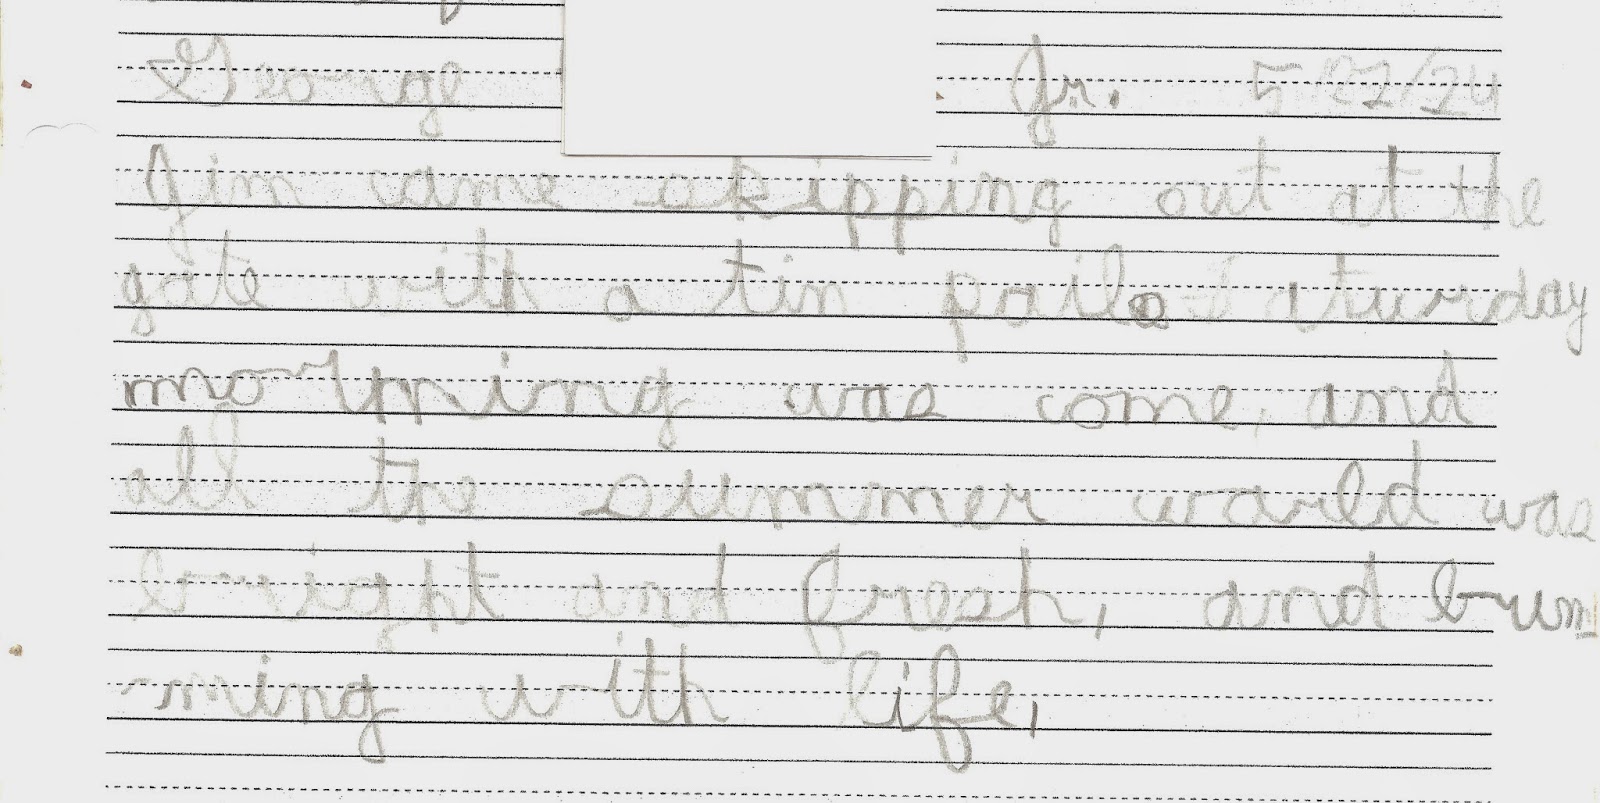 George Jr. 5/22/24
Jim came skipping out at the
gate with a tin pail. Saturday
morning was come, and
all the summer world was
bright and fresh, and brim
-ming with life.